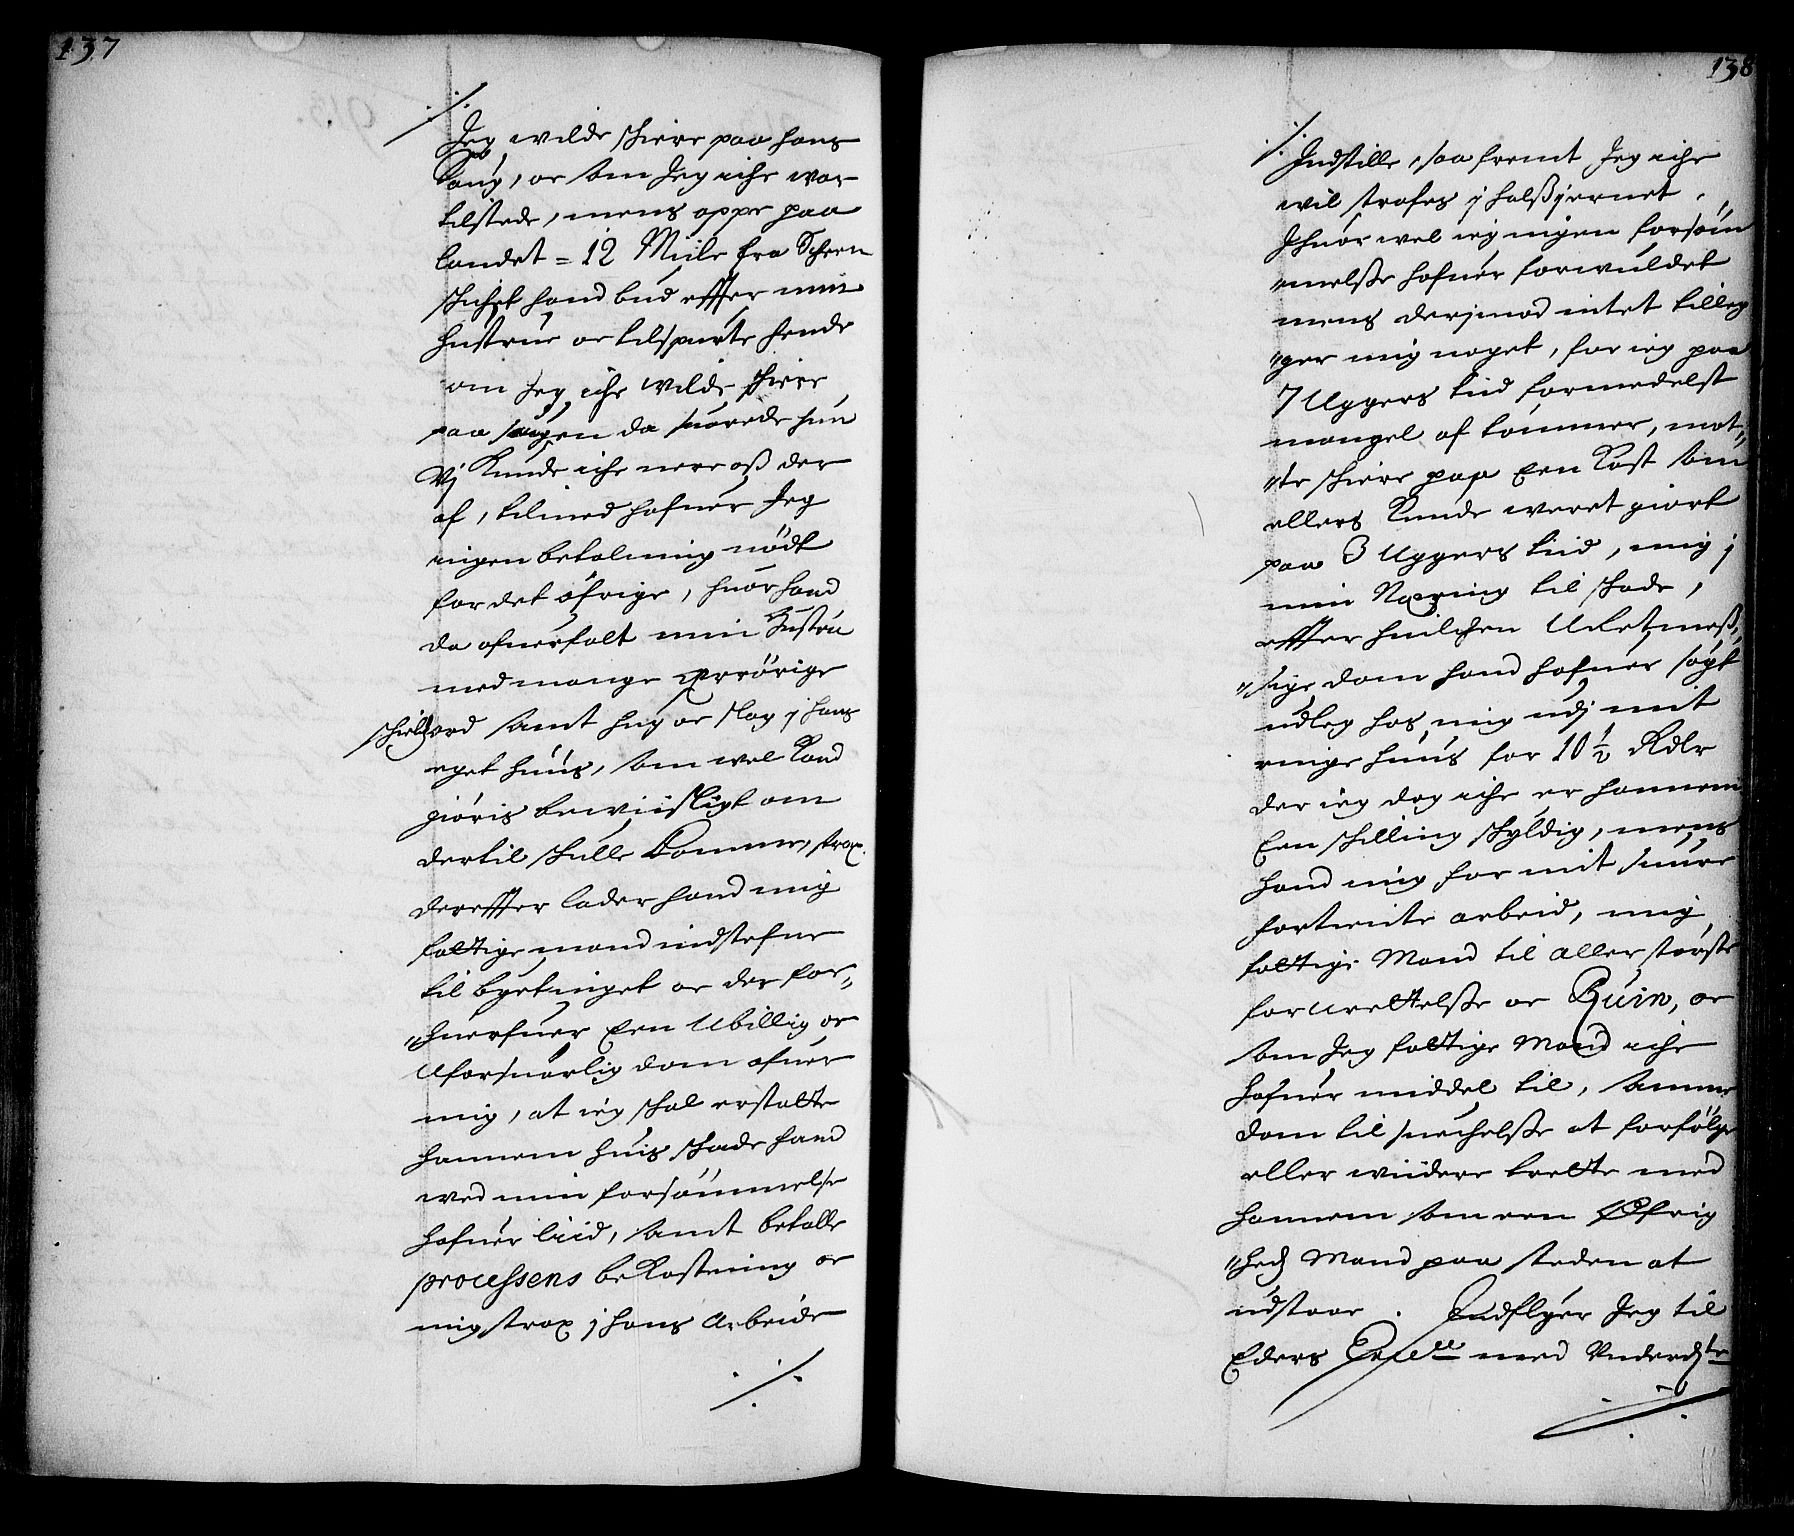 137
Jeg wilde schiere paa hans
Saug, oc som Jeg iche war
tilstede, mens oppe paa
landet = 12 Miile fra Scheen
schichet hand bud effter min
hustrue oc tilspurte hende
om Jeg iche wilde schiere
paa saugen da suarede hun
Vj Kunde iche nere oss der
af, tilmed hafuer Jeg
ingen betalning nødt
for det øfrige, huor hand
da ofuerfalt min Hustru
med mange ærrørige
schields ord samt hug oc slag j hans
eget huus, som wel Kand
giøris bewiisligt om
dertil schulle Komme, strax
dereffter lader hand mig
fattige mand indstefne
til byetinget oc der for„
„huerfuer Een Ubillig oc
Uforsuarlig dom ofuer
mig, at ieg schal erstatte
hannem huis schade hand
wed min forsømmelse
hafuer liid, samt betalle
processens beKostning oc
mig strax j hans Arbeide
138
Indstille, saa fremt Jeg iche
wil strafes j halssjernet,
Ihuor wel ieg ingen forsøm
„melsse hafuer forwuldet
mens derjmod intet tilleg
„ger mig noget, for ieg paa
7 Uggers tiid formedelst
mangel af tømmer, mat„
„te schiere paa Een Kost som
ellers Kunde weret giort
paa 3 Uggers tiid, mig j
min Næring til schade,
effter huilchen Uretmess„
„sige dom hand hafuer søgt
udleg hos mig udj mit
ringe huus for 10½ Rdlr
der ieg dog iche er hannem
Een schilling schyldig, mens
hand mig for mit suure
fortiente arbeid, mig
fattige Mand til allerstørste
forurettelsse oc Ruin, oc
som Jeg fattige Mand iche
hafuer middel til, samme
dom til suechelsse at forfølge
eller wiidere trette med
hannem som een Øfrig
„heds Mand paa steden at
udstaae. Indflyer Jeg til
Eders Excell med Underd ste